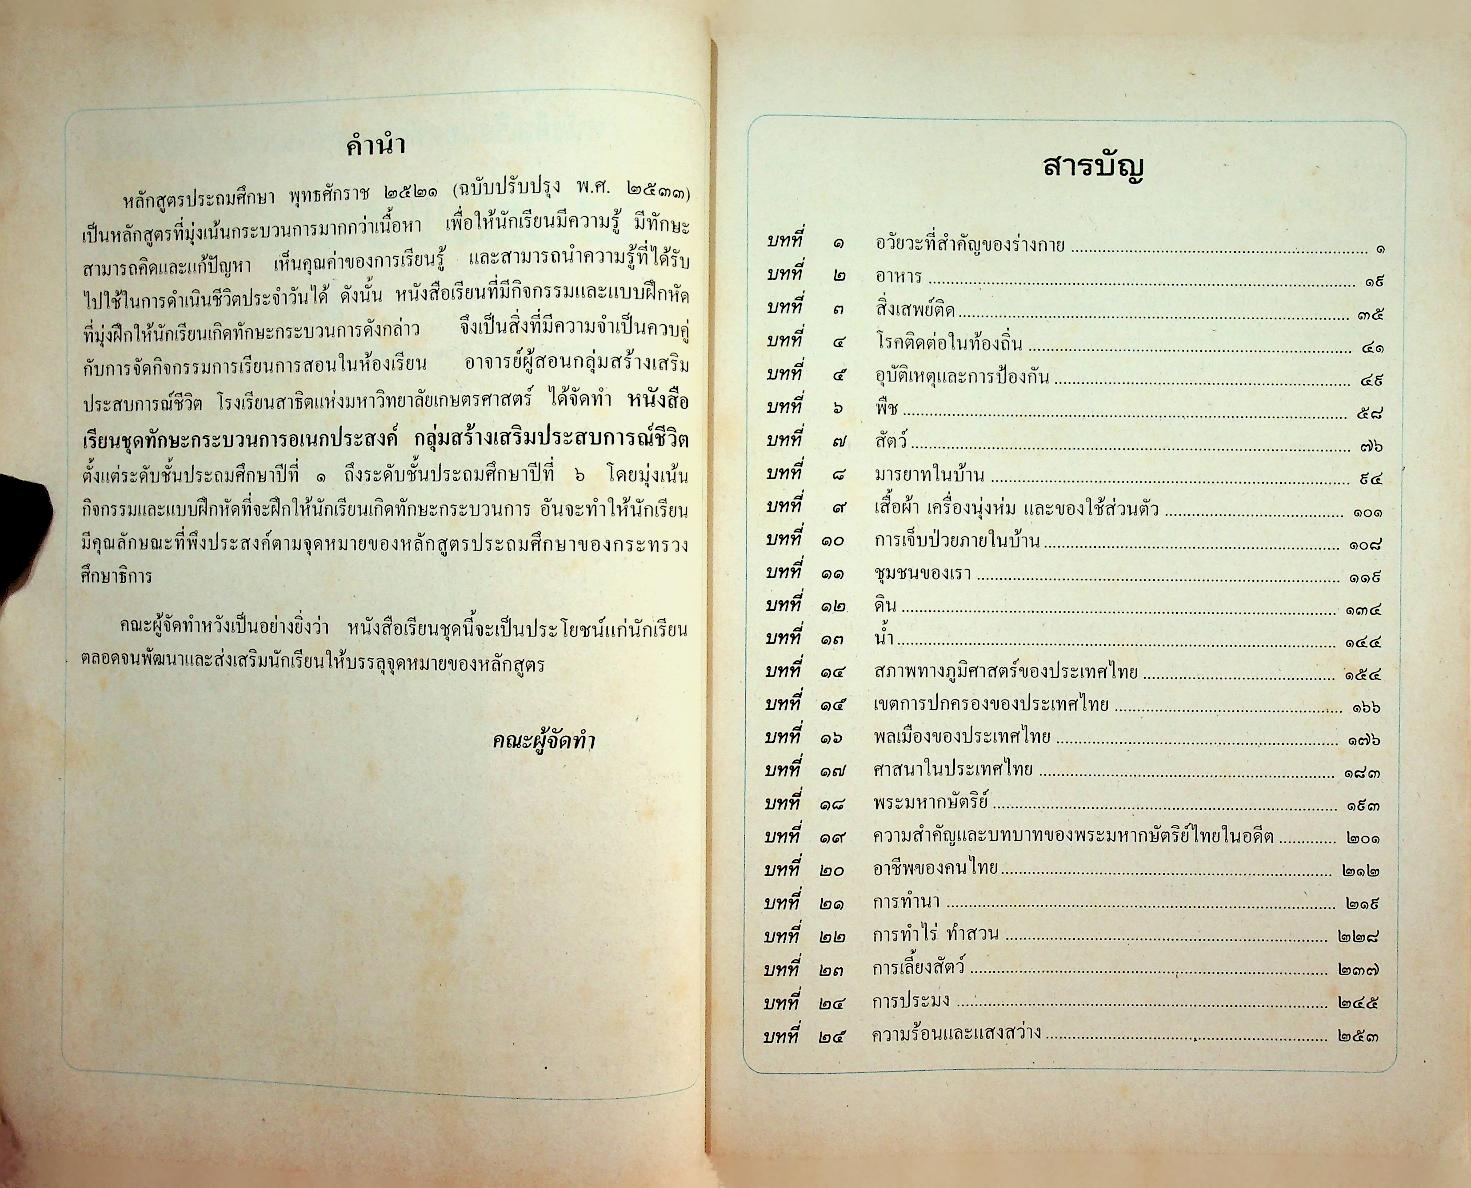 คำนำ
หลักสูตรประถมศึกษา พุทธศักราช ๒๕๒๑ (ฉบับปรับปรุง พ.ศ. ๒๕๓๓)
เป็นหลักสูตรที่มุ่งเน้นกระบวนการมากกว่าเนื้อหา เพื่อให้นักเรียนมีความรู้ มีทักษะ
สามารถคิดและแก้ปัญหา เห็นคุณค่าของการเรียนรู้ และสามารถนำความรู้ที่ได้รับ
ไปใช้ในการดำเนินชีวิตประจำวันได้ ดังนั้น หนังสือเรียนที่มีกิจกรรมและแบบฝึกหัด
ที่มุ่งฝึกให้นักเรียนเกิดทักษะกระบวนการดังกล่าว จึงเป็นสิ่งที่มีความจำเป็นควบคู่
กับการจัดกิจกรรมการเรียนการสอนในห้องเรียน อาจารย์ผู้สอนกลุ่มสร้างเสริม
ประสบการณ์ชีวิต โรงเรียนสาธิตแห่งมหาวิทยาลัยเกษตรศาสตร์ ได้จัดทำ หนังสือ
เรียนชุดทักษะกระบวนการอเนกประสงค์ กลุ่มสร้างเสริมประสบการณ์ชีวิต
ตั้งแต่ระดับชั้นประถมศึกษาปีที่ ๑ ถึงระดับชั้นประถมศึกษาปีที่ ๖ โดยมุ่งเน้น
กิจกรรมและแบบฝึกหัดที่จะฝึกให้นักเรียนเกิดทักษะกระบวนการ อันจะทำให้นักเรียน
มีคุณลักษณะที่พึงประสงค์ตามจุดหมายของหลักสูตรประถมศึกษาของกระทรวง
ศึกษาธิการ
คณะผู้จัดทำหวังเป็นอย่างยิ่งว่า หนังสือเรียนชุดนี้จะเป็นประโยชน์แก่นักเรียน
ตลอดจนพัฒนาและส่งเสริมนักเรียนให้บรรลุจุดหมายของหลักสูตร
คณะผู้จัดทำ
สารบัญ
บทที่ ๑ อวัยวะที่สำคัญของร่างกาย ๑
บทที่ ๒ อาหาร ๑๙
บทที่ ๓ สิ่งเสพย์ติด ๓๕
บทที่ ๔ โรคติดต่อในท้องถิ่น ๔๑
บทที่ ๕ อุบัติเหตุและการป้องกัน ๔๙
บทที่ ๖ พืช ๕๘
บทที่ ๗ สัตว์ ๗๖
บทที่ ๘ มารยาทในบ้าน ๙๔
บทที่ ๙ เสื้อผ้า เครื่องนุ่งห่ม และของใช้ส่วนตัว ๑๐๑
บทที่ ๑๐ การเจ็บป่วยภายในบ้าน ๑๐๘
บทที่ ๑๑ ชุมชนของเรา ๑๑๙
บทที่ ๑๒ ดิน ๑๓๔
บทที่ ๑๓ น้ำ ๑๔๔
บทที่ ๑๔ สภาพทางภูมิศาสตร์ของประเทศไทย ๑๕๔
บทที่ ๑๕ เขตการปกครองของประเทศไทย ๑๖๖
บทที่ ๑๖ พลเมืองของประเทศไทย ๑๗๖
บทที่ ๑๗ ศาสนาในประเทศไทย ๑๘๓
บทที่ ๑๘ พระมหากษัตริย์ ๑๙๓
บทที่ ๑๙ ความสำคัญและบทบาทของพระมหากษัตริย์ไทยในอดีต ๒๐๑
บทที่ ๒๐ อาชีพของคนไทย ๒๑๒
บทที่ ๒๑ การทำนา ๒๑๙
บทที่ ๒๒ การทำไร่ ทำสวน ๒๒๘
บทที่ ๒๓ การเลี้ยงสัตว์ ๒๓๗
บทที่ ๒๔ การประมง ๒๔๕
บทที่ ๒๕ ความร้อนและแสงสว่าง ๒๕๓